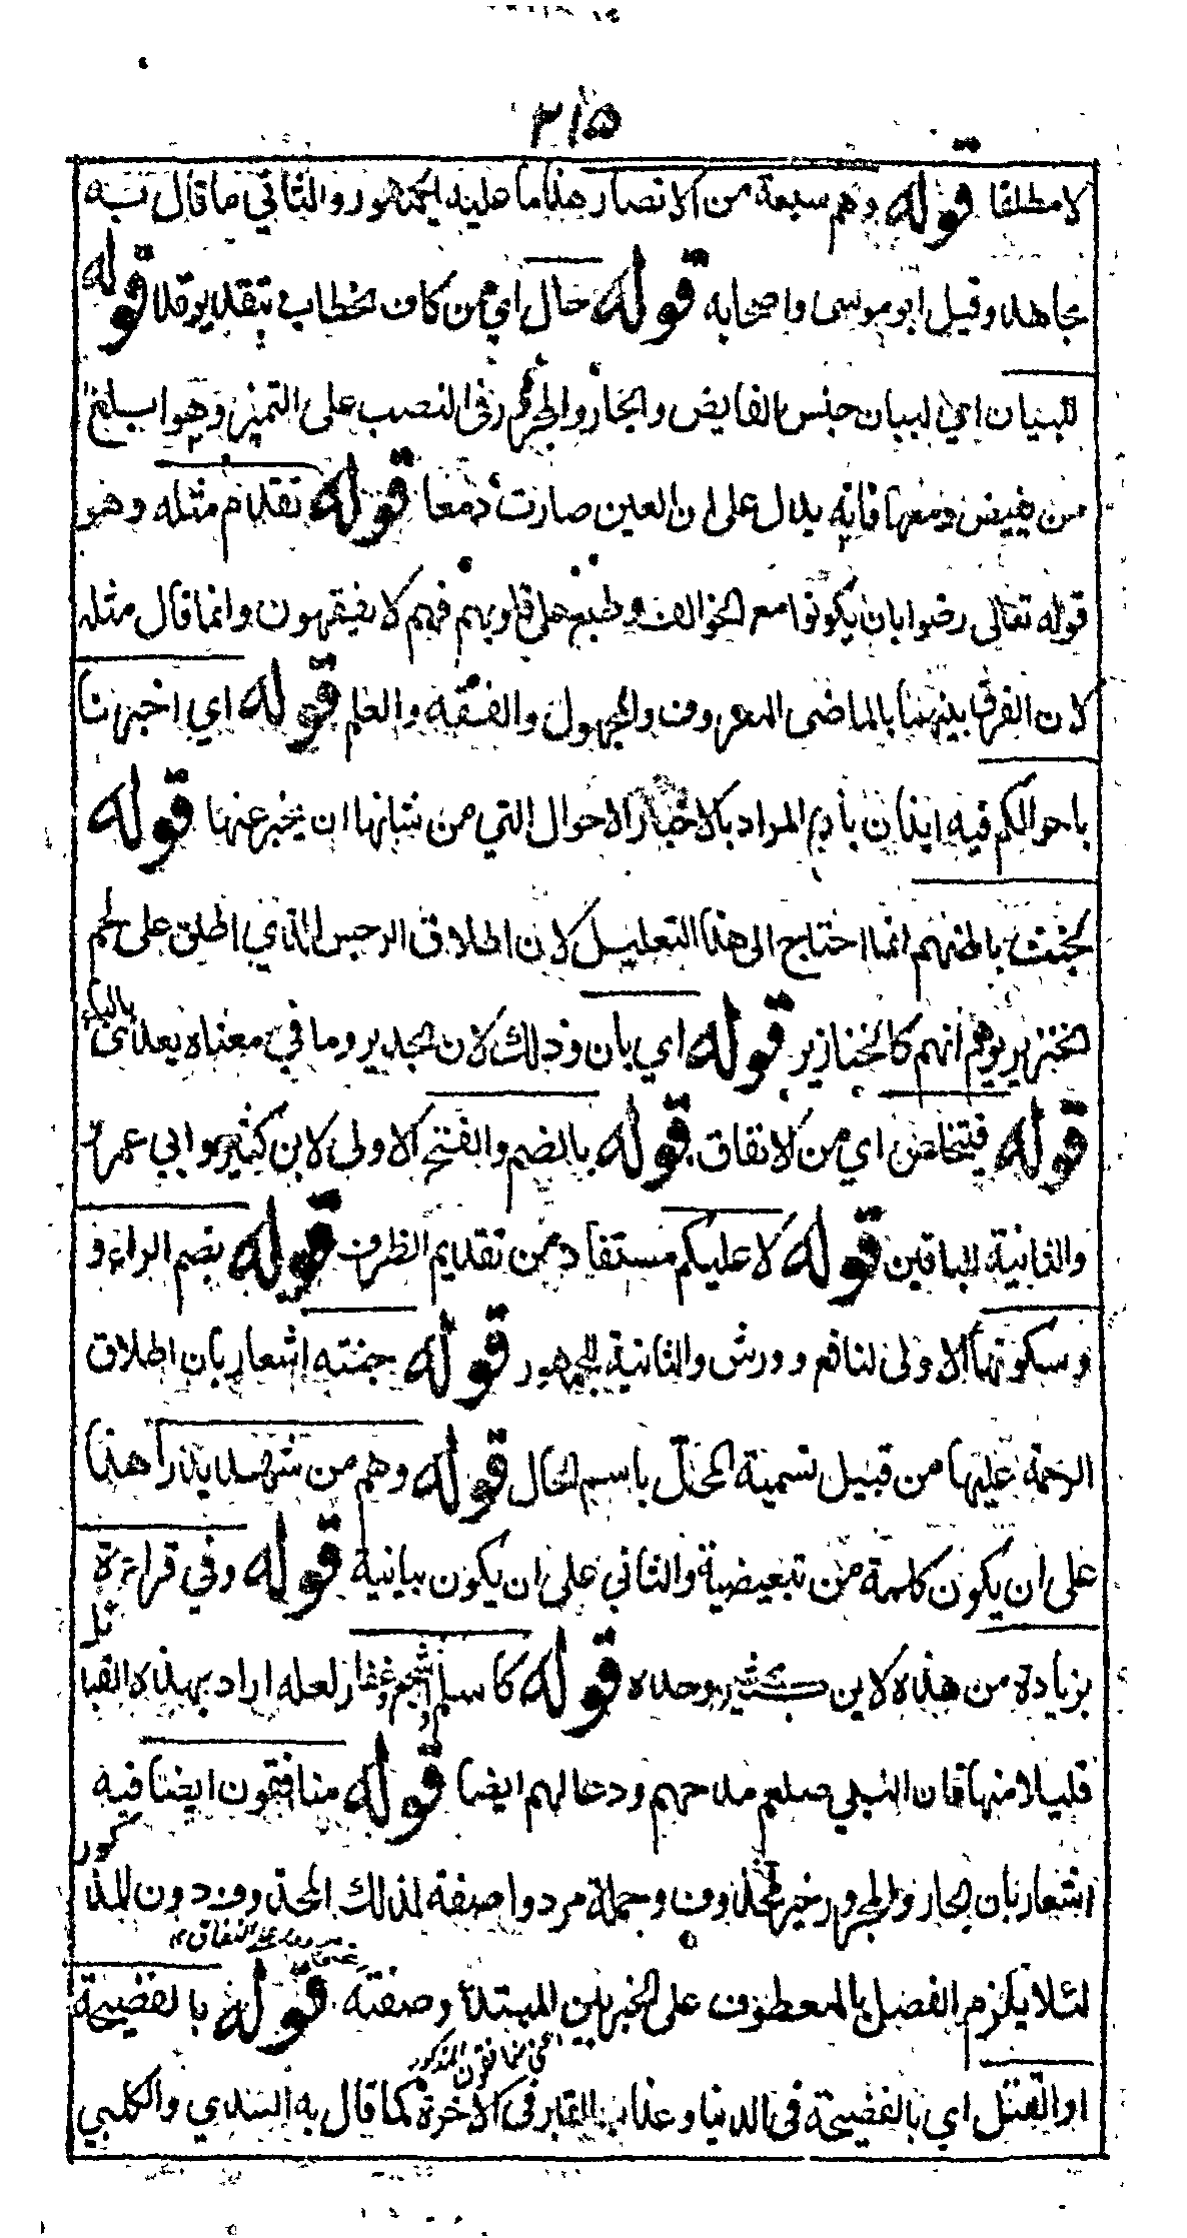 ٣١٥
لا مطلقا قوله وهم سبعة من الانصار هذا ما عليه الجمهور والثاني ما قال به
مجاهد وقيل ابو موسى واصحابه قوله حال اي من كاف لخطاب بتقدير قد قوله
للبيان اي لبيان جنس الفايض والجار والمجرور في النصب على التميز وهو ابلغ
من يفيض دمعها فانه يدل على ان العين صارت دمعا قوله تقدم مثله وهو
قوله تعالى رضوا بان يكونوا مع الخوالف وطبع على قلوبهم فهم لا يفقهون وانما قال مثله
لان الفرق بينهما بالماضي المعروف والمجهول والفقه والعلم قوله اي اخبرنا
باحوالكم فيه ايذان بأن المراد بالاخبار الاحوال التي من شانها ان يخبر عنها قوله
لخبث باطنهم انما احتاج الى هذا التعليل لان اطلاق الرجس الذي اطلق على لحم
الخنزير يوهم انهم كالخنازير قوله اي بان وذلك لان الجدير وما في معناه يعدى بالباء
قوله فيتخلص اي من الانفاق قوله بالضم والفتح الاولى لابن كثير وابي عمرو
والثانية للباقين قوله لا عليكم مستفاد من تقديم الظرف قوله بضم الراء و
وسكونها الاولى لنافع وورش والثانية للجمهور قوله جنته اشعار بان اطلاق
الرحمة عليها من قبيل تسمية المحل باسم الحال قوله وهم من شهد بدرا هذا
على ان يكون كلمة من تبعيضية والثاني على ان يكون بيانية قوله وفي قراءة
بزيادة من هذه لابن كثير وحده قوله كاسلم اشجع وغفار لعله اراد بهذه القبائل
قليلا منها فان النبي صلعم مدحهم ودعا لهم ايضا قوله منافقون ايضا فيه
اشعار بان الجار والمجرور خبر محذوف وجملة مردوا صفة لذلك المحذوف دون المذكور
لئلا يلزم الفصل بالمعطوف على الخبر بين المبتدأ وصفته قوله بالفضيحة
او القتل اي بالفضيحة في الدنيا وعذاب القبر في الاخرة كما قال به السدي والكلبي